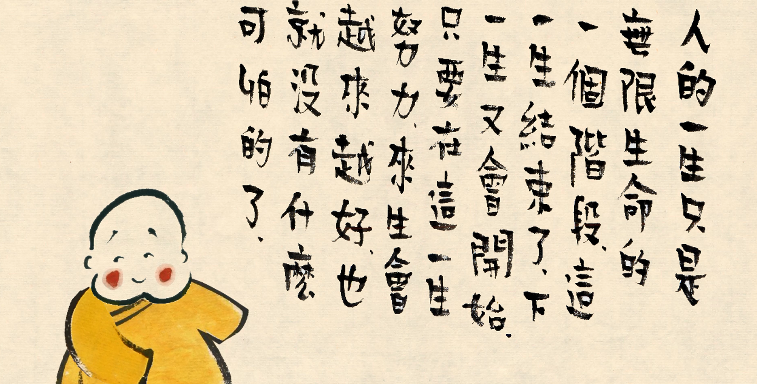 人的一生只是
無限生命的
一個階段,這
一生結束了,下
一生又會開始.
只要在這一生
努力,來生會
越來越好,也
就没有什麼
可怕的了.